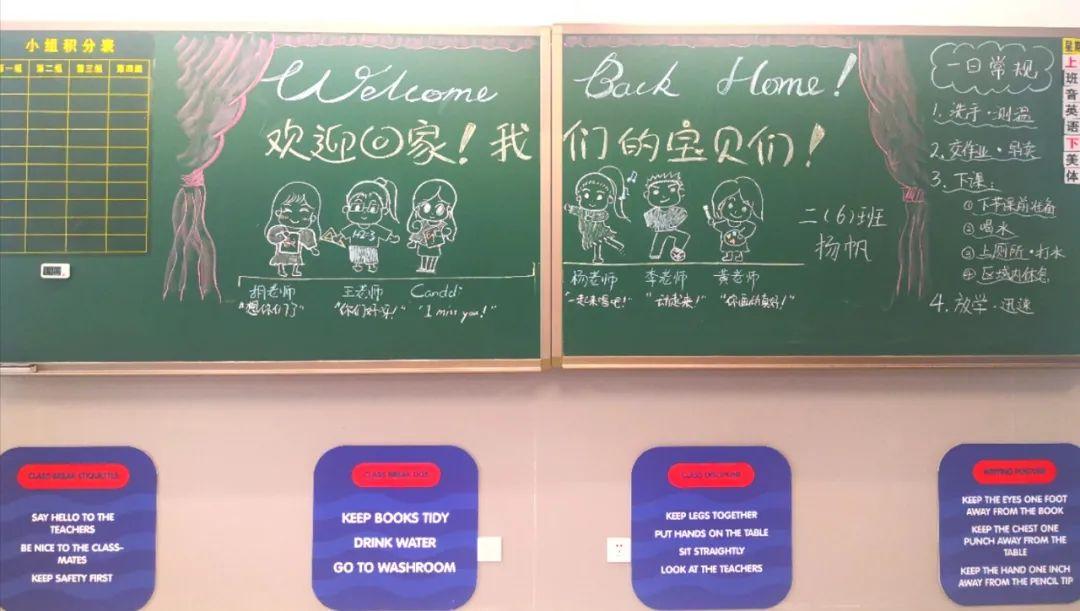 小组积分表
第一组 第二组 第三组 第四组
Welcome Back Home!
欢迎回家！我们的宝贝们！
胡老师
"想你们了"
王老师
"你们好呀！"
"I miss you!"
杨老师
"一起来唱吧！"
李老师
"动起来！"
黄老师
"你画的真好！"
二（6）班
杨帆
一日常规
1. 洗手·测温
2. 交作业·早读
3. 下课：
①下节课前准备
②喝水
③上厕所·打水
④区域内休息
4. 放学·迅速
星期
上
班
音
英
语
下
美
体
CLASS BREAK ETIQUETTES
SAY HELLO TO THE
TEACHERS
BE NICE TO THE CLASS-
MATES
KEEP SAFETY FIRST
CLASS BREAK DOS
KEEP BOOKS TIDY
DRINK WATER
GO TO WASHROOM
CLASS DISCIPLINE
KEEP LEGS TOGETHER
PUT HANDS ON THE TABLE
SIT STRAIGHTLY
LOOK AT THE TEACHERS
WRITING POSTURE
KEEP THE EYES ONE FOOT
AWAY FROM THE BOOK
KEEP THE CHEST ONE
PUNCH AWAY FROM THE
TABLE
KEEP THE HAND ONE INCH
AWAY FROM THE PENCIL TIP